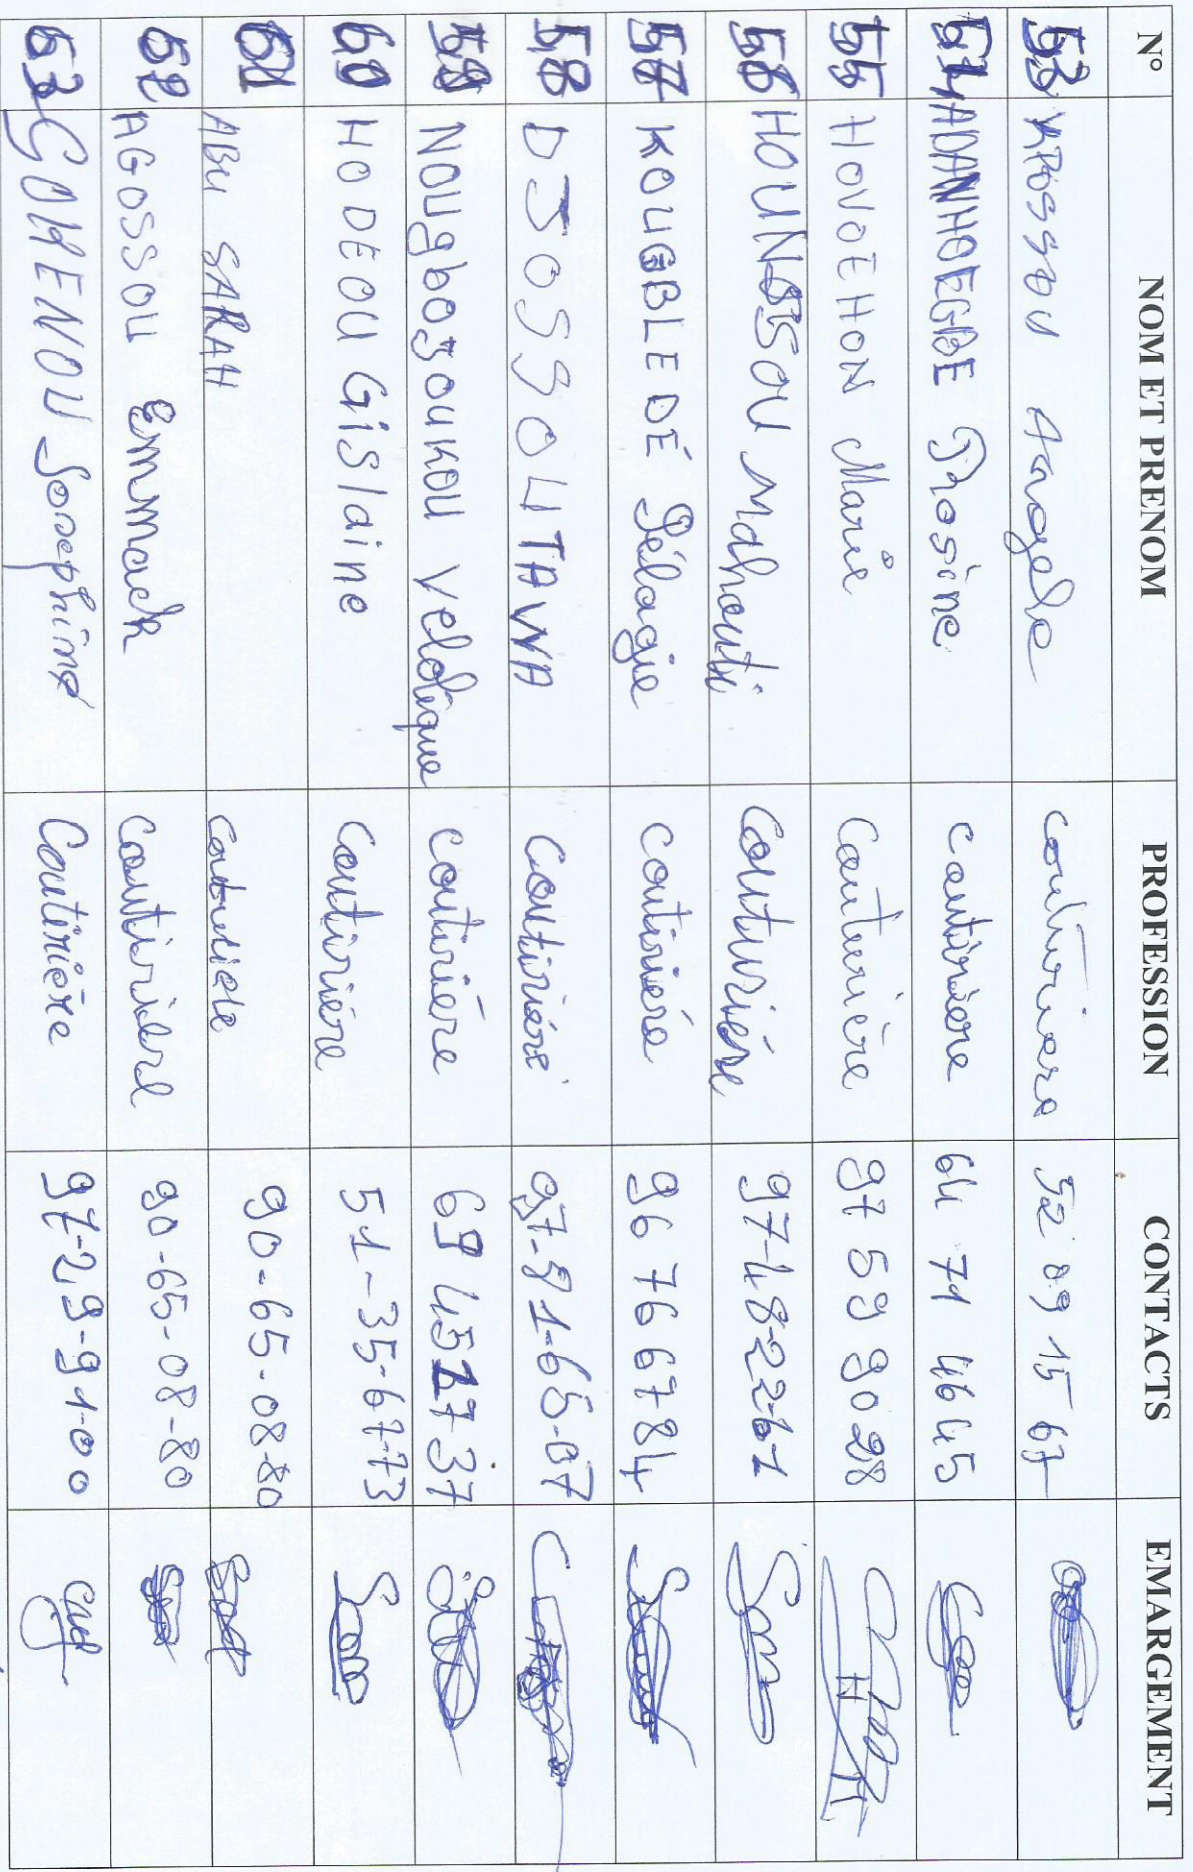 N° NOM ET PRENOM PROFESSION CONTACTS EMARGEMENT
53 KPOSSOU Angele couturiere 52 09 15 67
54 ADANHOEGBE Rosine coutirière 64 71 46 45
55 HOVOEHON Marie Couturière 97 59 90 28
56 HOUNSSOU Mahouti Couturière 97-48-22-61
57 KOUGBLEDÉ Pélagie coutirière 96 76 67 84
58 DJOSSOU TAWA Coutiriére 97-91-65-07
59 Nougbozoukou Velolique coutirière 69 45 17 37
60 HODEOU Gislaine Coutirière 51-35-67-73
61 ABU SARAH 90-65-08-80
62 AGOSSOU Emmack Coutirière 90-65-08-80
63 GOMENOU Josephine Coutirière 97-29-91-00